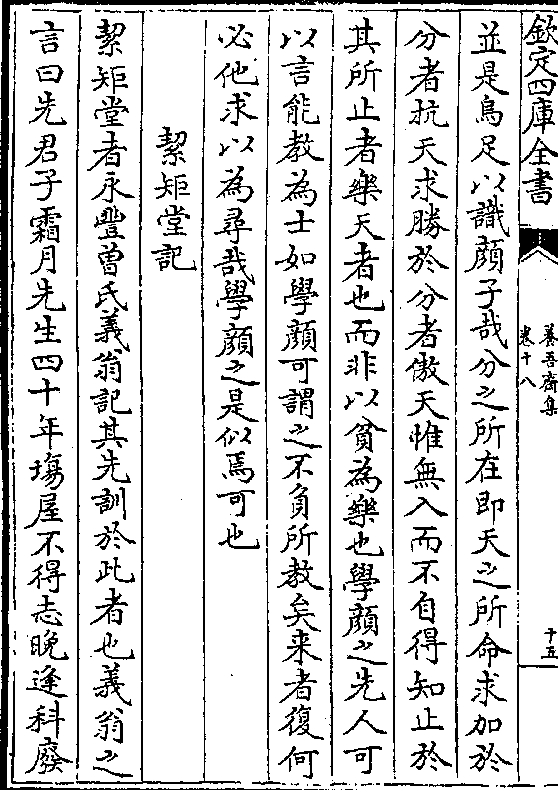 欽定四庫全書
養吾齋集
卷十八
十五
並是烏足以識顔子哉分之所在即天之所命求加於
分者抗天求勝於分者傲天惟無入而不自得知止於
其所止者樂天者也而非以貧為樂也學顔之先人可
以言能教為士如學顔可謂之不負所教矣来者復何
必他求以為尋哉學顔之是似焉可也
絜矩堂記
絜矩堂者永豐曽氏義翁記其先訓於此者也義翁之
言曰先君子霜月先生四十年塲屋不得志晚逢科廢